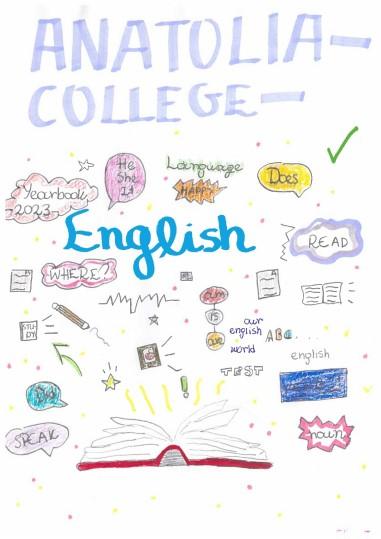 ANATOLIA
COLLEGE
He
She
It
Language
HAPPY
Does
Yearbook
2023
English
READ
WHERE?
am
is
are
STU
DY
our
english
world
ABC...
english
TEST
Did
SPEAK
noun